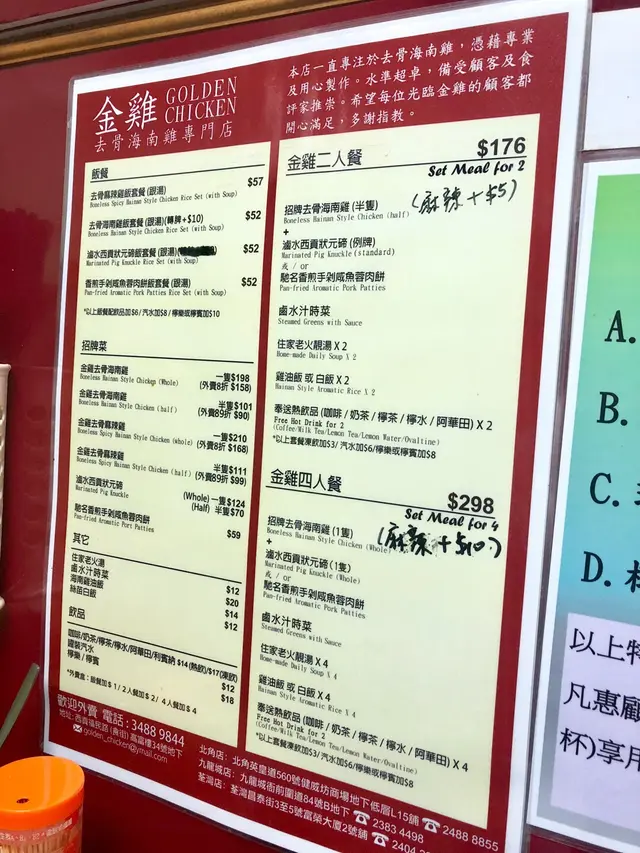 金雞 GOLDEN CHICKEN
去骨海南雞專門店
本店一直專注於去骨海南雞，憑藉專業
及用心製作。水準超卓，備受顧客及食
評家推崇。希望每位光臨金雞的顧客都
開心滿足，多謝指教。
飯餐
去骨麻辣雞飯套餐 (跟湯) $57
Boneless Spicy Style Chicken Rice Set (with Soup)
去骨海南雞飯套餐 (跟湯)(轉脾+$10) $52
Boneless Hainan Style Chicken Rice Set (with Soup)
滷水西貢狀元蹄飯套餐 (跟湯) $52
Marinated Pig Knuckle Rice Set (with Soup)
香煎手剁咸魚蓉肉餅飯套餐 (跟湯) $52
Pan-fried Aromatic Pork Patties Rice Set (with Soup)
*以上飯餐配飲品加$6/ 汽水加$8 / 檸樂或檸賓加$10
招牌菜
金雞去骨海南雞 一隻$198
Boneless Hainan Style Chicken (Whole) (外賣8折 $158)
金雞去骨海南雞 半隻$101
Boneless Hainan Style Chicken (half) (外賣89折 $90)
金雞去骨麻辣雞 一隻$210
Boneless Spicy Hainan Style Chicken (whole) (外賣8折 $168)
金雞去骨麻辣雞 半隻$111
Boneless Spicy Hainan Style Chicken (half) (外賣89折 $99)
滷水西貢狀元蹄 (Whole) 一隻$124
Marinated Pig Knuckle (Half) 半隻$70
馳名香煎手剁咸魚蓉肉餅
Pan-fried Aromatic Port Patties $59
其它
住家老火湯 $12
鹵水汁時菜 $20
海南雞油飯 $14
絲苗白飯 $12
飲品
咖啡/奶茶/檸茶/檸水/阿華田/利賓納 $14 (熱飲)/$17(凍飲)
罐裝汽水 $12
檸樂 / 檸賓 $18
*外賣盒：飯餐加$ 1 / 2人餐加$ 2/ 4人餐加$ 4
金雞二人餐 $176
Set Meal for 2
招牌去骨海南雞 (半隻) (麻辣+$5)
Boneless Hainan Style Chicken (half)
+
滷水西貢狀元蹄 (例牌)
Marinated Pig Knuckle (standard)
或 / or
馳名香煎手剁咸魚蓉肉餅
Pan-fried Aromatic Pork Patties
鹵水汁時菜
Steamed Greens with Sauce
住家老火靚湯 X 2
Home-made Daily Soup X 2
雞油飯 或 白飯 X 2
Hainan Style Aromatic Rice X 2
奉送熱飲品 (咖啡 / 奶茶 / 檸茶 / 檸水 / 阿華田) X 2
Free Hot Drink for 2
(Coffee/Milk Tea/Lemon Tea/Lemon Water/Ovaltine)
*以上套餐凍飲加$3/ 汽水加$6/檸樂或檸賓加$8
金雞四人餐 $298
Set Meal for 4
招牌去骨海南雞 (1隻) (麻辣+$10)
Boneless Hainan Style Chicken (Whole)
+
滷水西貢狀元蹄 (1隻)
Marinated Pig Knuckle (Whole)
或 / or
馳名香煎手剁咸魚蓉肉餅
Pan-fried Aromatic Pork Patties
鹵水汁時菜
Steamed Greens with Sauce
住家老火靚湯 X 4
Home-made Daily Soup X 4
雞油飯 或 白飯 X 4
Hainan Style Aromatic Rice X 4
奉送熱飲品 (咖啡 / 奶茶 / 檸茶 / 檸水 / 阿華田) X 4
Free Hot Drink for 2
(Coffee/Milk Tea/Lemon Tea/Lemon Water/Ovaltine)
*以上套餐凍飲加$3/ 汽水加$6/檸樂或檸賓加$8
歡迎外賣 電話 : 3488 9844
地址: 西貢福民路 (食街) 高富樓34號地下
golden_chicken@ymail.com
北角店：北角英皇道560號健威坊商場地下低層L15舖 ☎ 2488 8855
九龍城店：九龍城衙前圍道84號B地下 ☎ 2383 4498
荃灣店：荃灣昌泰街3至5號富榮大廈2號舖 ☎ 2404
A.
B.
C.
D.
以上特
凡惠顧
杯)享用